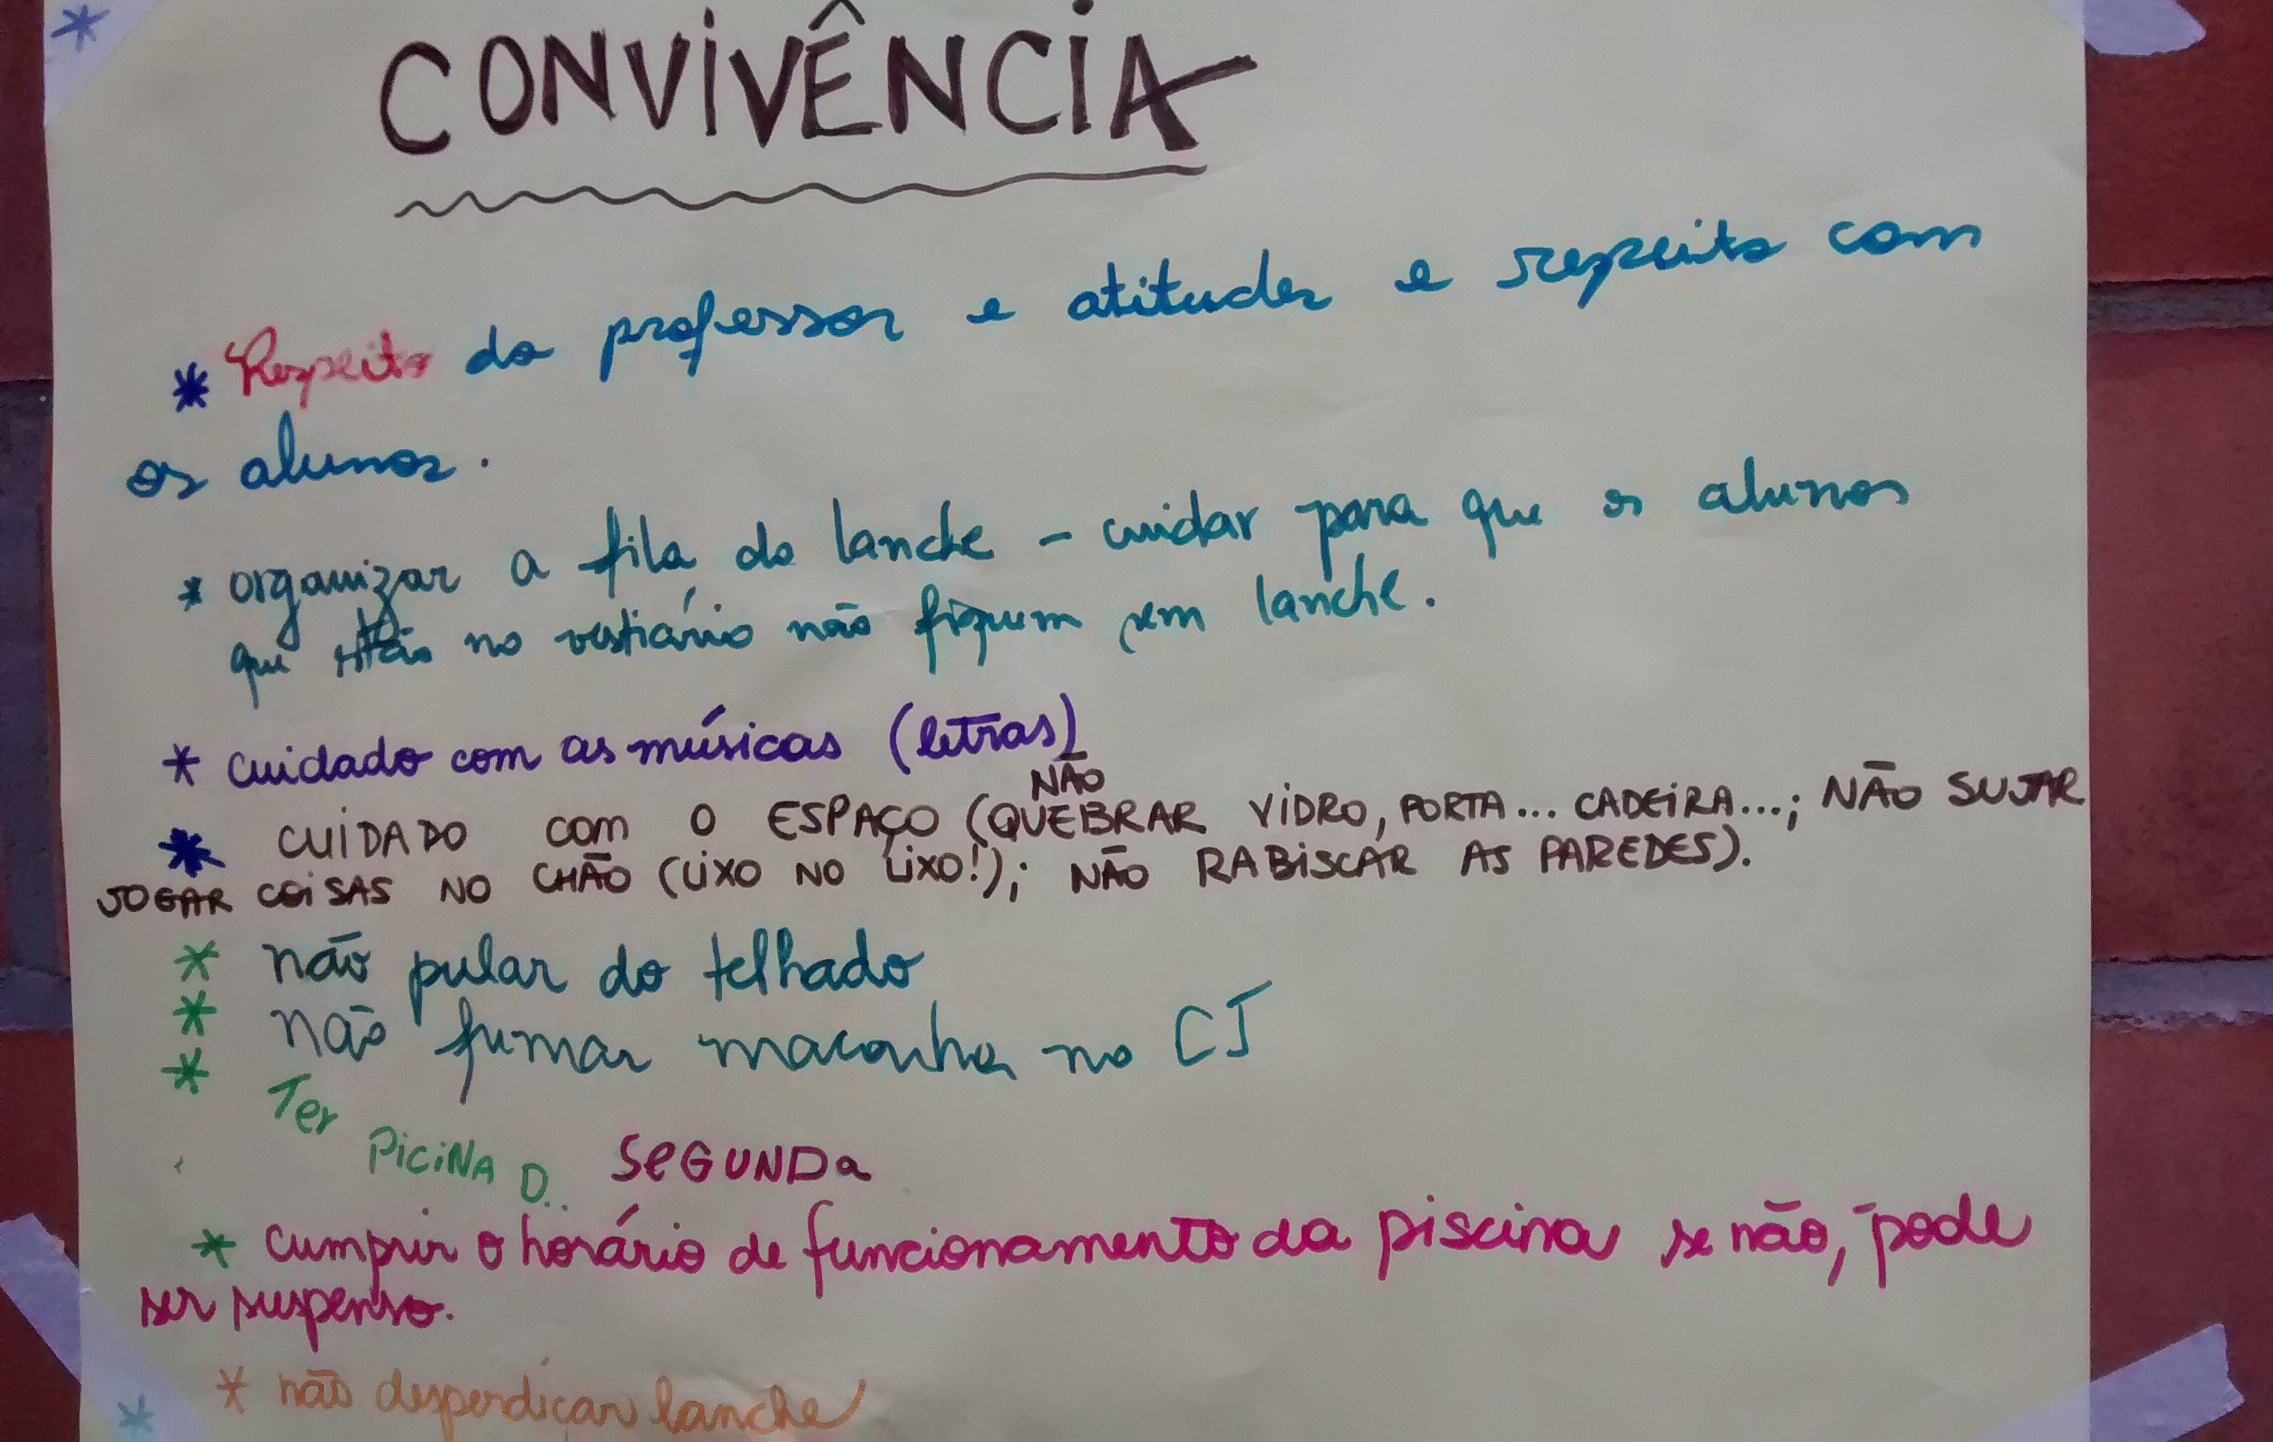 CONVIVÊNCIA
* Respeito do professor e atitudes e respeito com
os alunos.
* organizar a fila do lanche - cuidar para que os alunos
que estão no vestiário não fiquem sem lanche.
* cuidado com as músicas (letras)
NÃO
* CUIDADO com O ESPAÇO (QUEBRAR VIDRO, PORTA... CADEIRA...; NÃO SUJAR
JOGAR COISAS NO CHÃO (LIXO NO LIXO!); NÃO RABISCAR AS PAREDES).
* não pular do telhado
* não fumar maconha no CJ
* Ter PICINA D.. SEGUNDA
* cumprir o horário de funcionamento da piscina se não, pode
ser suspenso.
* não desperdiçar lanche